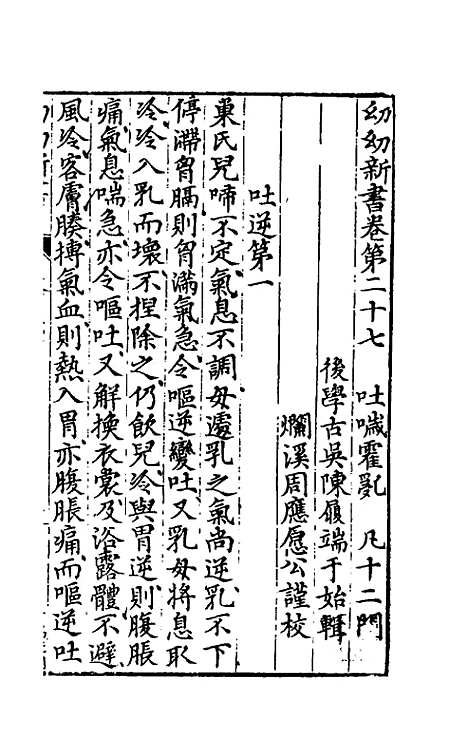 幼幼新書卷第二十七 吐噦霍亂 凡十二門
後學古吳陳履端于始輯
爛溪周應愿公謹校
吐逆第一
東氏兒啼不定氣息不調母遽乳之氣尚逆乳不下
停滯胷膈則胷滿氣急令嘔逆變吐又乳母將息取
冷冷入乳而壞不捏除之仍飲兒冷與胃逆則腹脹
痛氣息喘急亦令嘔吐又解換衣裳及浴露體不避
風冷客膚腠搏氣血則熱入胃亦腹脹痛而嘔逆吐